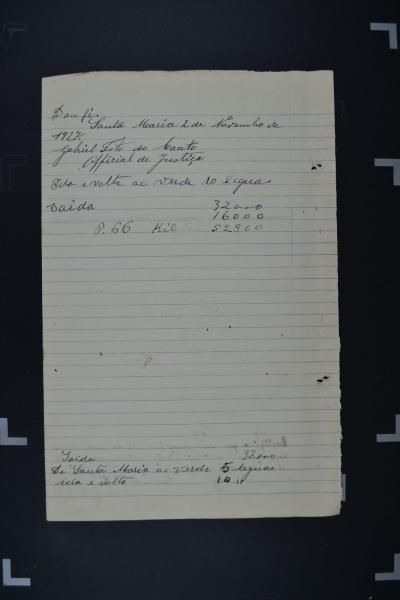 Dou fé.
Santa Maria 2 de Novembro de
1927.
Gabriel do Canto
Official de Justiça
Ida e volta ao Verde 10 leguas
Saida 32000
16000
P. 66 Kil 52800
Saida 32000
De Santa Maria ao Verde 5 leguas
ida e volta 10 "